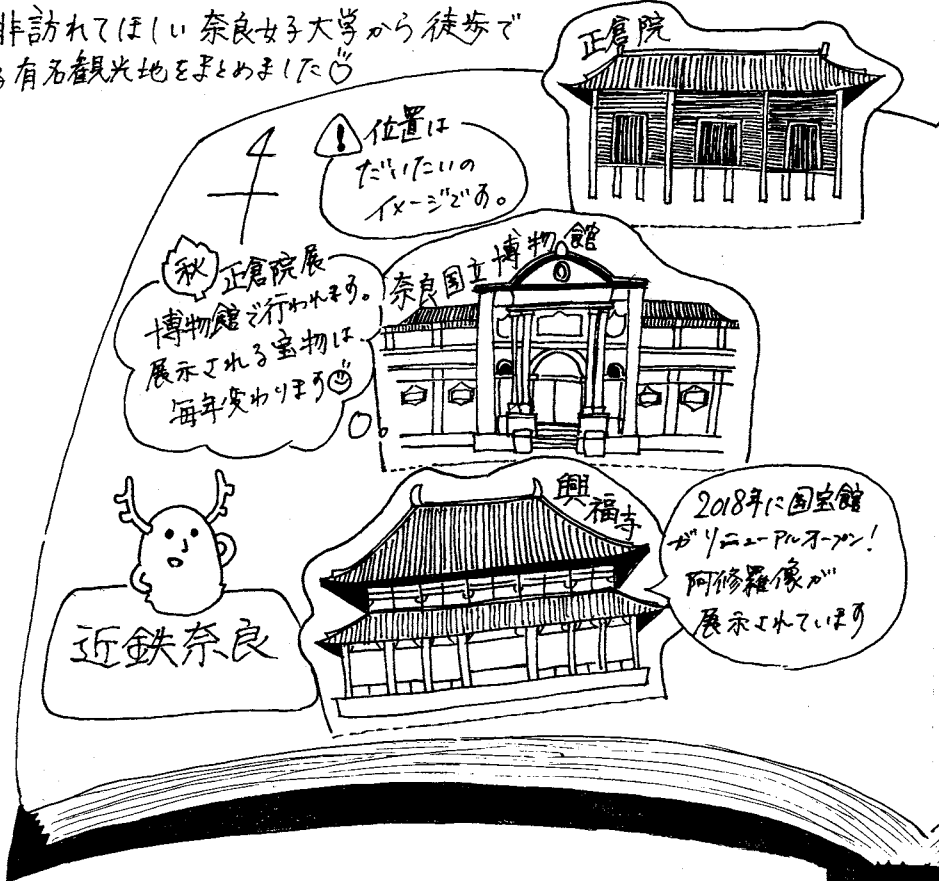 非訪れてほしい奈良女子大学から徒歩で
る有名観光地をまとめました
正倉院
! 位置は
だいたいの
イメージです。
秋 正倉院展
博物館で行われます。
展示される宝物は、
毎年変わります
奈良国立博物館
興福寺
2018年に国宝館
がリニューアルオープン!
阿修羅像が
展示されています
近鉄奈良